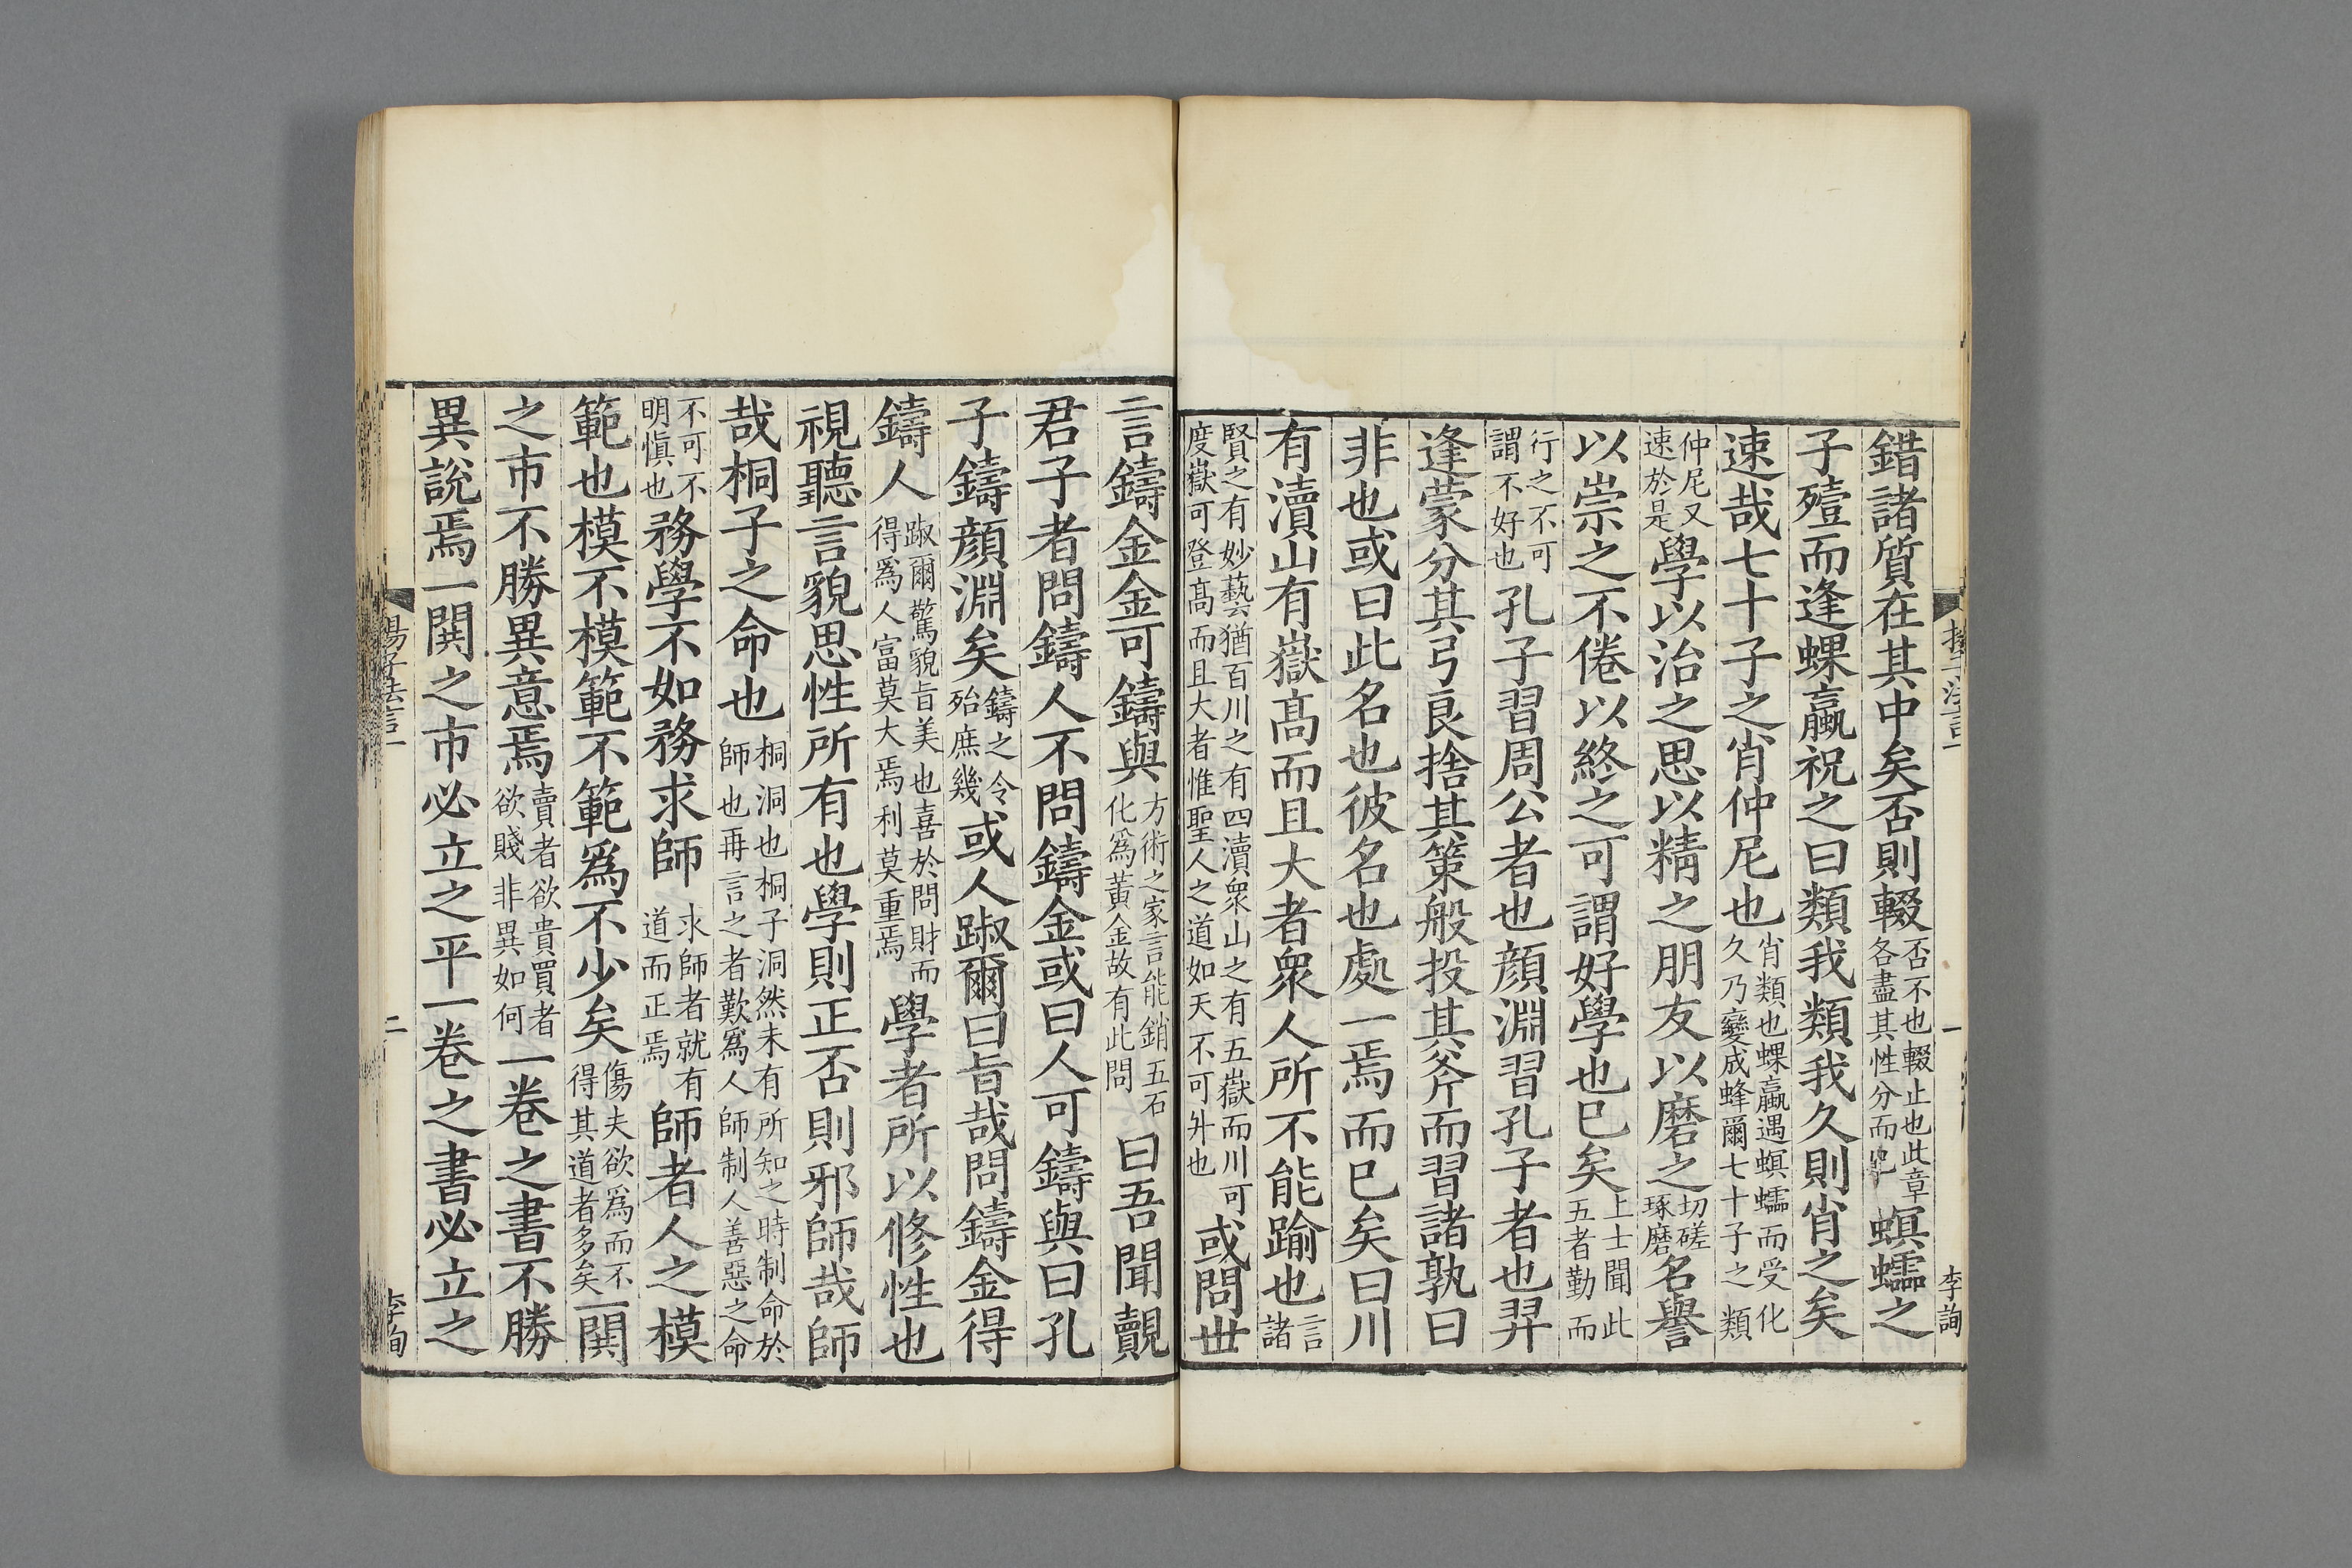 錯諸質在其中矣否則輟否不也輟止也此章各盡其性分而 螟蠕之
子殪而逢蜾蠃祝之曰類我類我久則肖之矣
速哉七十子之肖仲尼也肖類也蜾蠃遇螟蠕而受化久乃變成蜂爾七十子之類
仲尼又速於是學以治之思以精之朋友以磨之切磋琢磨名譽
以崇之不倦以終之可謂好學也巳矣上士聞此五者勤而
行之不可謂不好也孔子習周公者也顔淵習孔子者也羿
逢蒙分其弓良捨其策般投其斧而習諸孰曰
非也或曰此名也彼名也處一焉而巳矣曰川
有瀆山有嶽髙而且大者衆人所不能踰也言諸
賢之有妙藝猶百川之有四瀆衆山之有五嶽而川可度嶽可登髙而且大者惟聖人之道如天不可升也或問世
言鑄金金可鑄與方術之家言能銷五石化爲黄金故有此問曰吾聞覿
君子者問鑄人不問鑄金或曰人可鑄與曰孔
子鑄顔淵矣鑄之令殆庶幾或人踧爾曰旨哉問鑄金得
鑄人踧爾驚貌旨美也喜於問財而得爲人富莫大焉利莫重焉學者所以修性也
視聽言貌思性所有也學則正否則邪師哉師
哉桐子之命也桐洞也桐子洞然未有所知之時制命於師也再言之者歎爲人師制人善惡之命
不可不明慎也務學不如務求師求師者就有道而正焉師者人之模
範也模不模範不範爲不少矣傷夫欲爲而不得其道者多矣一閧
之市不勝異意焉賣者欲貴買者欲賤非異如何一巻之書不勝
異說焉一閧之市必立之平一巻之書必立之
一
李詢
楊子法言一
二
李詢